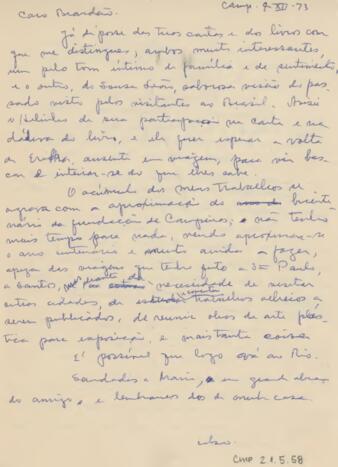 Camp. 9 XII - 73
Caro Brandão.
Já de posse das tuas cartas e do livro com
que me distingues, ambos muito interessantes,
um pelo tom íntimo de família e de sentimento,
e o outro, de Souza Leão, saborosa visão do pas-
sado visto pelos visitantes ao Brasil.
de sua participação na carta e na
dádiva do livro, e ele quer esperar a volta
de ausente em viagem, para vir bus-
car e inteirar-se do que lhes sabe.
O acúmulo dos meus trabalhos se
agrava com a aproximação do bicente-
nário da fundação de Campinas, e não tenho
mais tempo para nada, vendo aproximar-se
o ano centenário e muito ainda a fazer,
apesar das viagens que tenho feito a S. Paulo,
a Santos, necessidade de visitar
outras cidades, de trabalhos alheios a
serem publicados, de reunir obras de arte plás-
tica para exposição, e mais tanta coisa
É possível que logo vá ao Rio.
Saudades a Maria, e um grande abraço
do amigo, e lembranças dos de minha casa.
Cmp 21.5.58